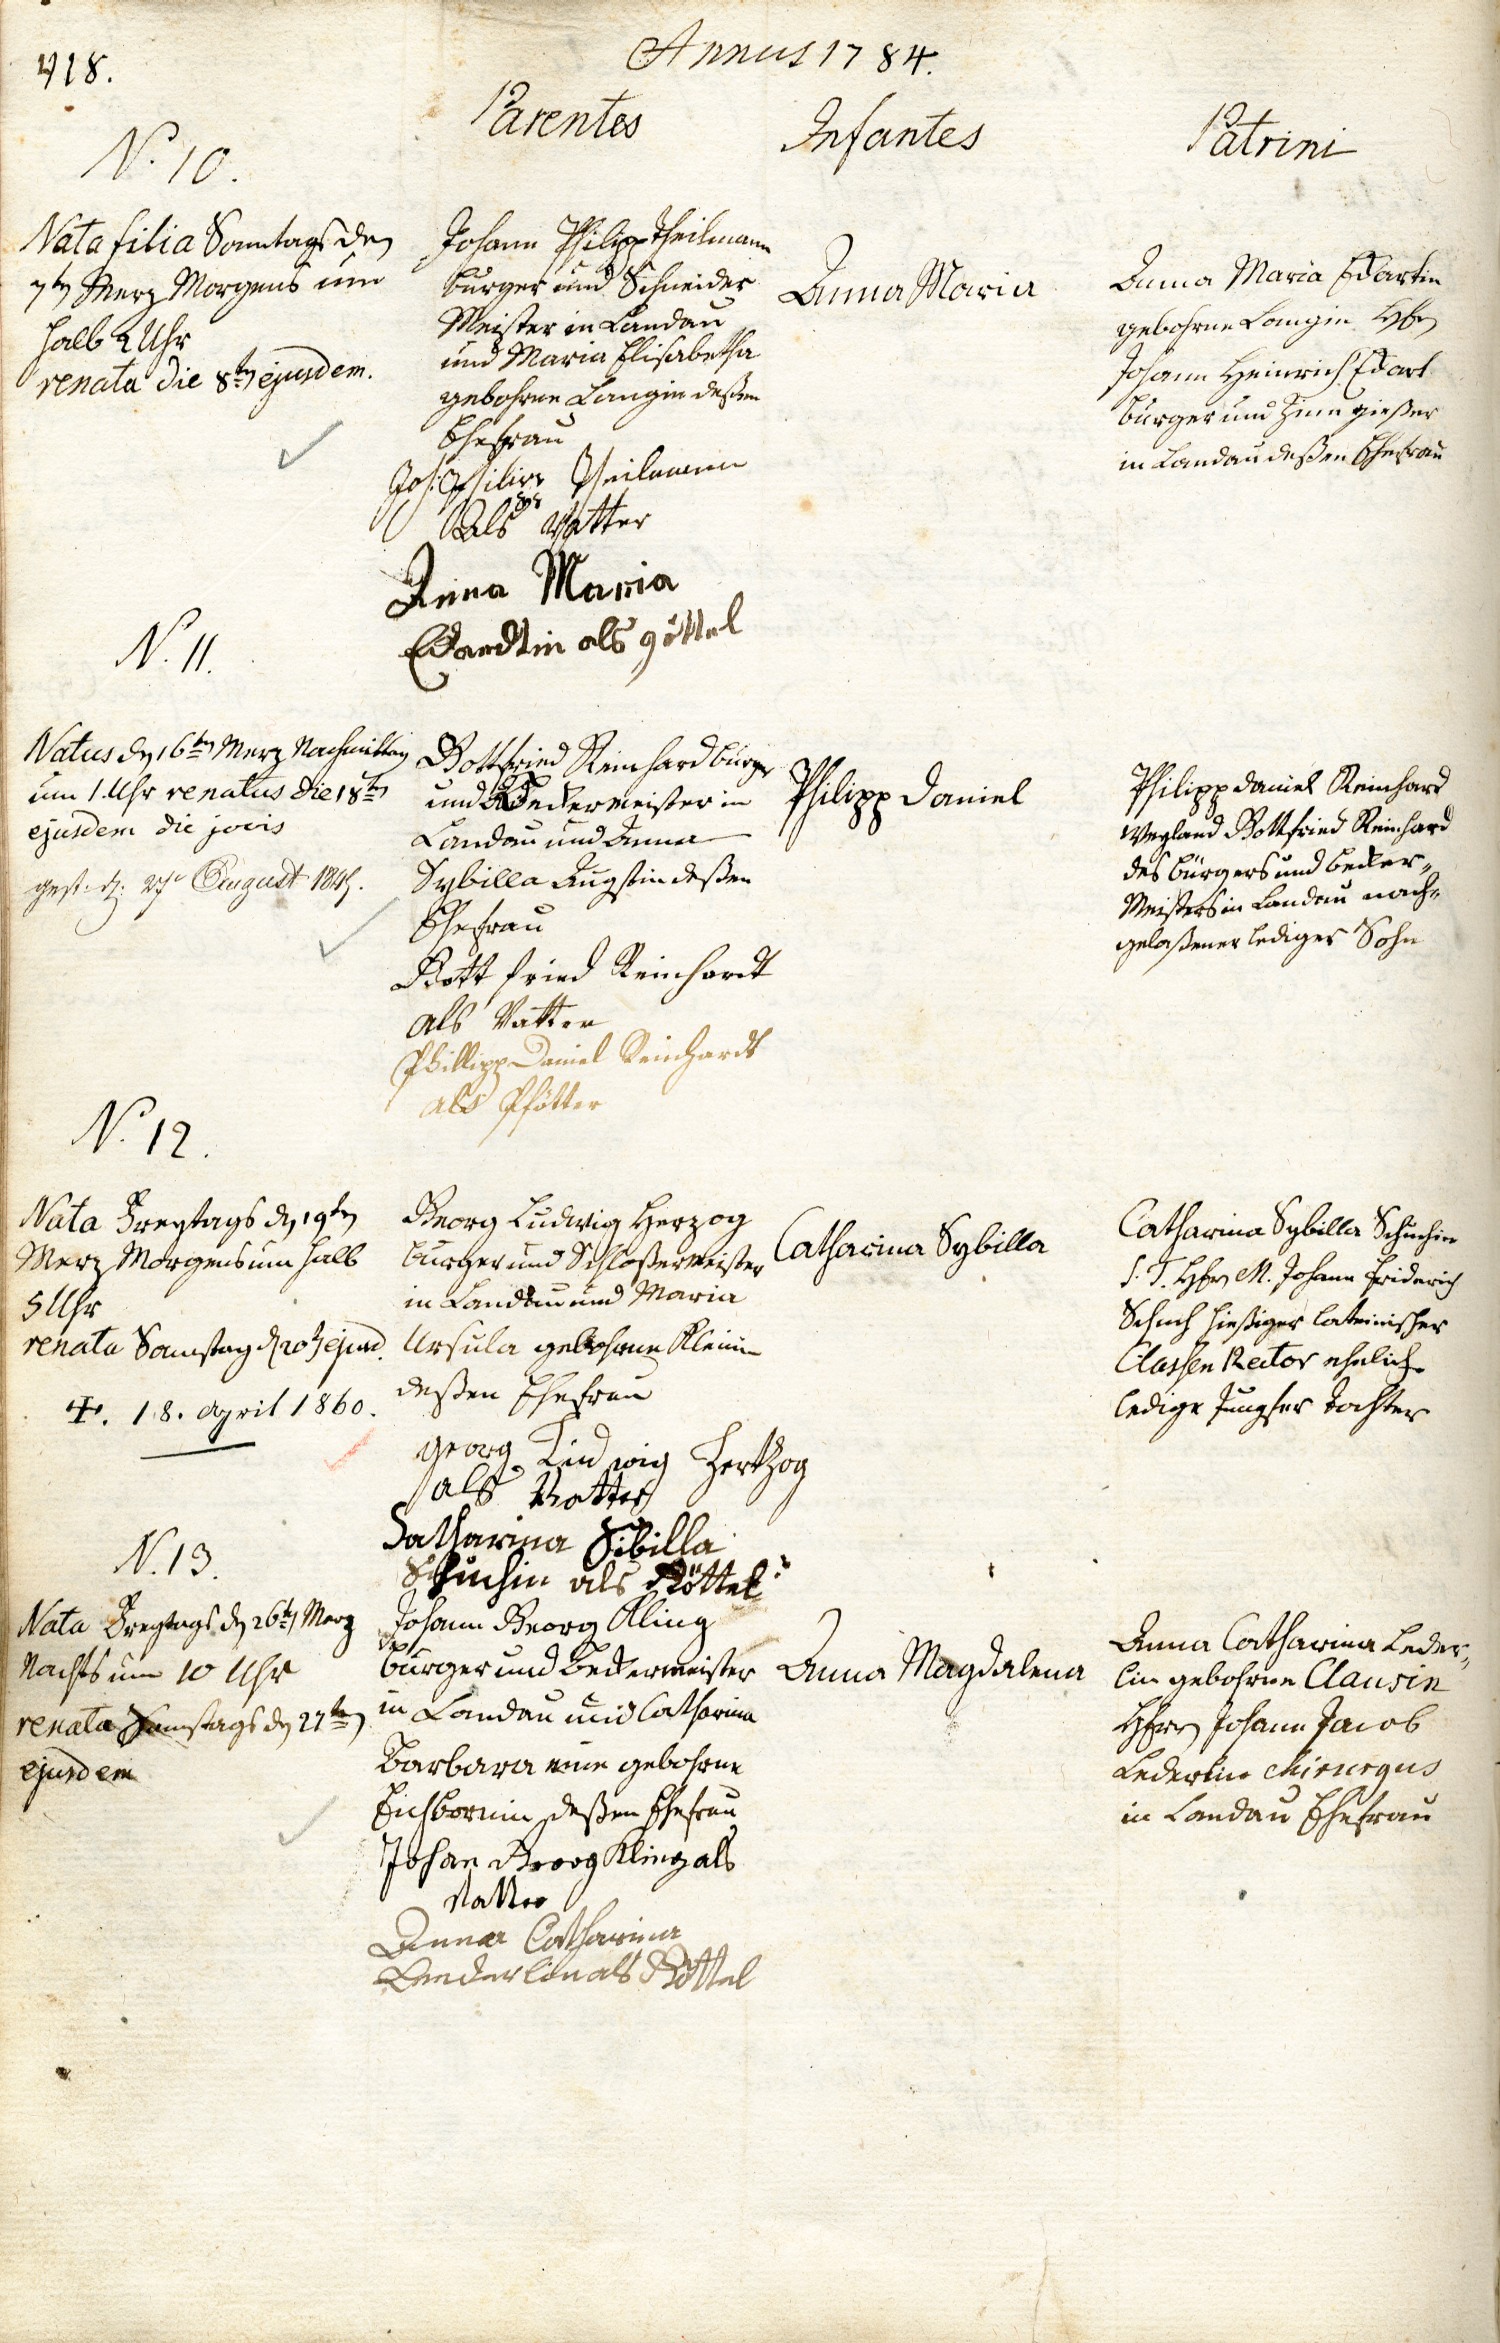 418.
Annus 1784.
Parentes
Infantes
Patrini
N. 10.
Nata filia Sonntags den
7ten Merz Morgens um
halb 2 Uhr
renata die 8ten ejusdem.
Johann Philipp Theilmann
burger und Schneider
Meister in Landau
und Maria Elisabetha
gebohrne Langin deßen
Ehefrau
Joh: Philipp Theilmann
Als Vatter
Anna Maria
Edardtin als göttel
Anna Maria
Anna Maria Edartin
gebohrne Langin Hrn
Johann Heinrich Edart
burger und Zinn gießer
in Landau deßen Ehefrau
N. 11.
Natus den 16ten Merz Nachmittag
um 1 Uhr renatus die 18ten
ejusdem die jovis
gest. d. August
Gottfried Reinhard burger
und Beckermeister in
Landau und Anna
Sybilla Augstin deßen
Ehefrau
Gottfried Reinhardt
als Vatter
Phillipp Daniel Reinhardt
als Pfötter
Philipp Daniel
Philipp Daniel Reinhard
Weyland Gottfried Reinhard
des bürgers und becker-
Meisters in Landau nach-
gelaßener lediger Sohn
N. 12.
Nata Freytags den 19ten
Merz Morgens um halb
5 Uhr
renata Samstag d 20t ejusd.
✝. 18. april 1860.
Georg Ludwig Herzog
burger und Schloßermeister
in Landau und Maria
Ursula gebohrne Kleinin
deßen Ehefrau
georg Ludwig Hertzog
als Vatter
Catharina Sibilla
Schuchin als Göttel
Catharina Sybilla
Catharina Sybilla Schuchin
S. T. Hrn M. Johann Friderich
Schuch hießiger lateinischer
Classen Rector ehelich
ledige Jungfer Tochter
N. 13.
Nata Freytags den 26ten Merz
Nachts um 10 Uhr
renata Samstags den 27ten
ejusdem
Johann Georg Kling
burger und Beckermeister
in Landau und Catharina
Barbara eine gebohrne
Eichbornin deßen Ehefrau
Johan Georg Kling als
Vatter
Anna Catharina
Lederlin als Göttel
Anna Magdalena
Anna Catharina Leder-
lin gebohrne Clausin
Herrn Johann Jacob
Lederlin chirurgus
in Landau Ehefrau